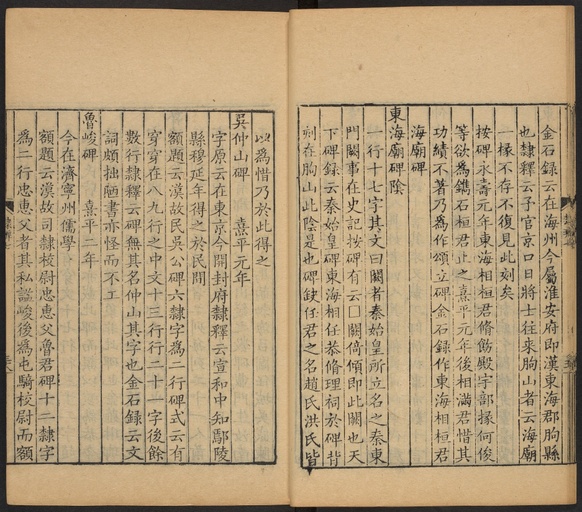 金石録云在海州今屬淮安府即漢東海郡朐縣
也隸釋云予官京口日將士往來朐山者云海廟
一椽不存不復見此刻矣
按碑永壽元年東海相桓君脩飭殿宇部掾何俊
等欲為鐫石桓君止之熹平元年後相滿君惜其
功績不著乃為作頌立碑金石錄作東海相桓君
海廟碑
東海廟碑陰
一行十七字其文曰闕者秦始皇所立名之秦東
門闕事在史記按碑有云□闕倚傾即此闕也天
下碑録云秦始皇碑東海相任恭脩理祠於碑背
刻在朐山此陰是也碑缺任君之名趙氏洪氏皆
以為惜乃於此得之
吳仲山碑 熹平元年
字原云在東京今開封府隸釋云宣和中知鄢陵
縣穆延年得之於民間
額題云漢故民吳公碑六隸字為二行碑式云有
穿穿在八九行之中文十三行行二十一字後餘
數行隸釋云碑無其名仲山其字也金石録云文
詞頗拙陋書亦怪而不工
魯峻碑 熹平二年
今在濟寧州儒學
額題云漢故司隸校尉忠惠父魯君碑十二隸字
為二行忠惠父者其私謚峻後為屯騎校尉而額